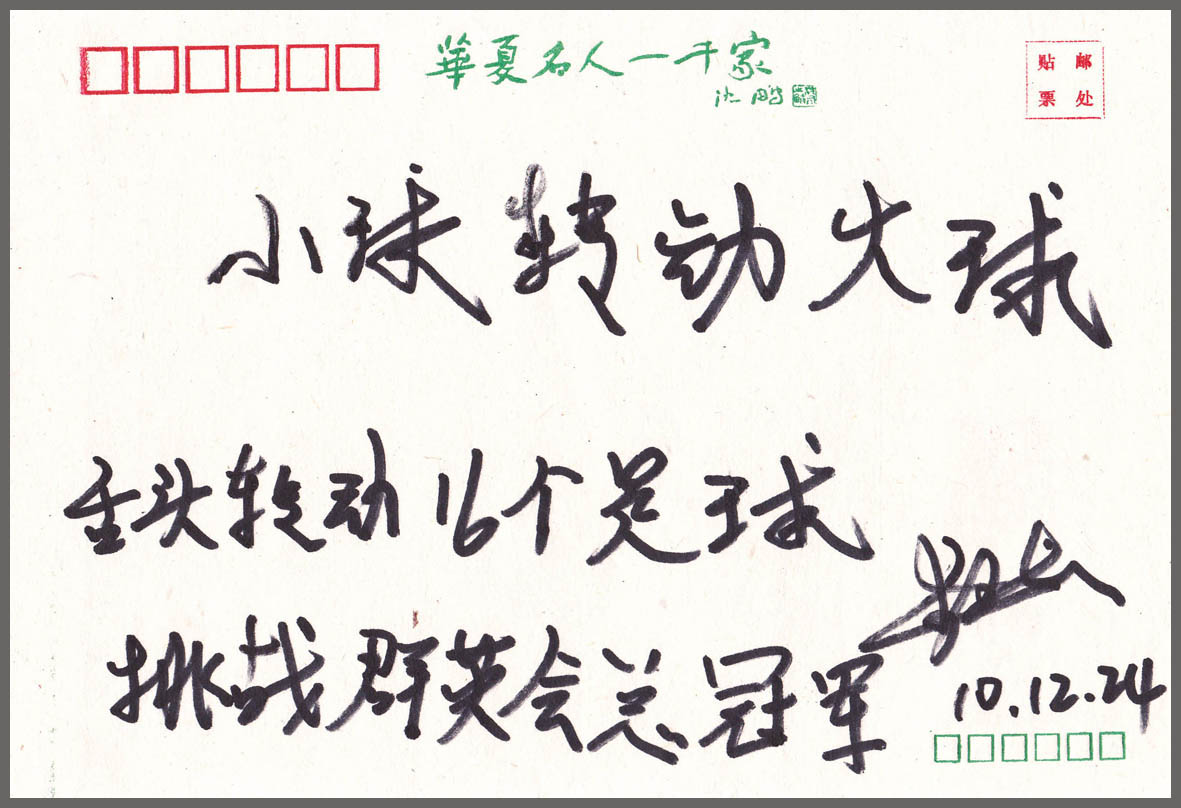 華夏名人一千家
沈鹏
贴 邮
票 处
小球转动大球
舌头转动16个足球
挑战群英会总冠军
10.12.24